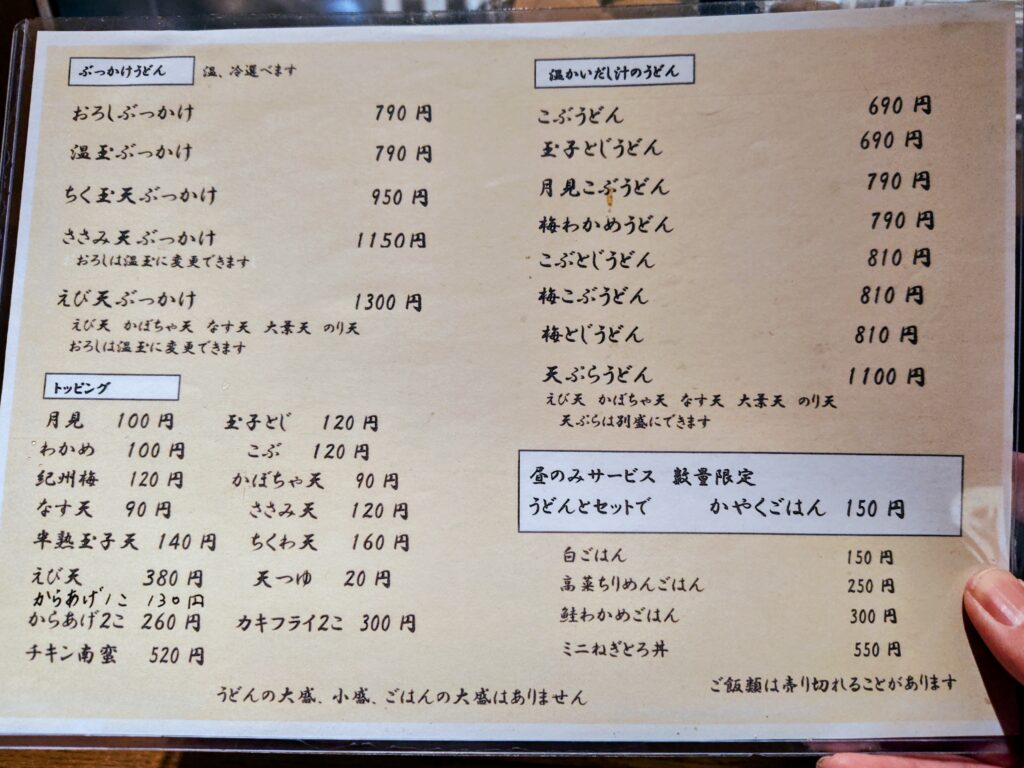 ぶっかけうどん 温、冷選べます
おろしぶっかけ 790 円
温玉ぶっかけ 790 円
ちく玉天ぶっかけ 950 円
ささみ天ぶっかけ 1150円
おろしは温玉に変更できます
えび天ぶっかけ 1300 円
えび天 かぼちゃ天 なす天 大葉天 のり天
おろしは温玉に変更できます
トッピング
月見 100 円 玉子とじ 120 円
わかめ 100 円 こぶ 120 円
紀州梅 120 円 かぼちゃ天 90 円
なす天 90 円 ささみ天 120 円
半熟玉子天 140 円 ちくわ天 160 円
えび天 380 円 天つゆ 20 円
からあげ1こ 130円
からあげ2こ 260 円 カキフライ2こ 300 円
チキン南蛮 520 円
うどんの大盛、小盛、ごはんの大盛はありません
温かいだし汁のうどん
こぶうどん 690 円
玉子とじうどん 690 円
月見こぶうどん 790 円
梅わかめうどん 790 円
こぶとじうどん 810 円
梅こぶうどん 810 円
梅とじうどん 810 円
天ぷらうどん 1100 円
えび天 かぼちゃ天 なす天 大葉天 のり天
天ぷらは別盛にできます
昼のみサービス 数量限定
うどんとセットで かやくごはん 150 円
白ごはん 150 円
高菜ちりめんごはん 250 円
鮭わかめごはん 300 円
ミニねぎとろ丼 550 円
ご飯類は売り切れることがあります